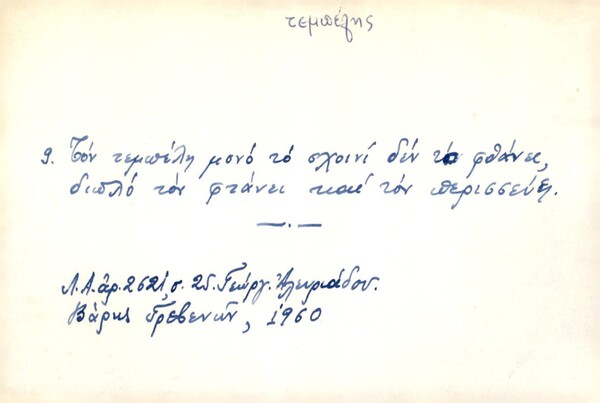 τεμπέλης
9. Τόν τεμπέλη μονό τό σχοινί δέν τό φθάνει,
διπλό τόν φτάνει καί τόν περισσεύει.
Λ.Α. ἀρ. 2621, σ. 25. Γεώργ. Ἀλευριάδου.
Βάρης Γρεβενῶν, 1960